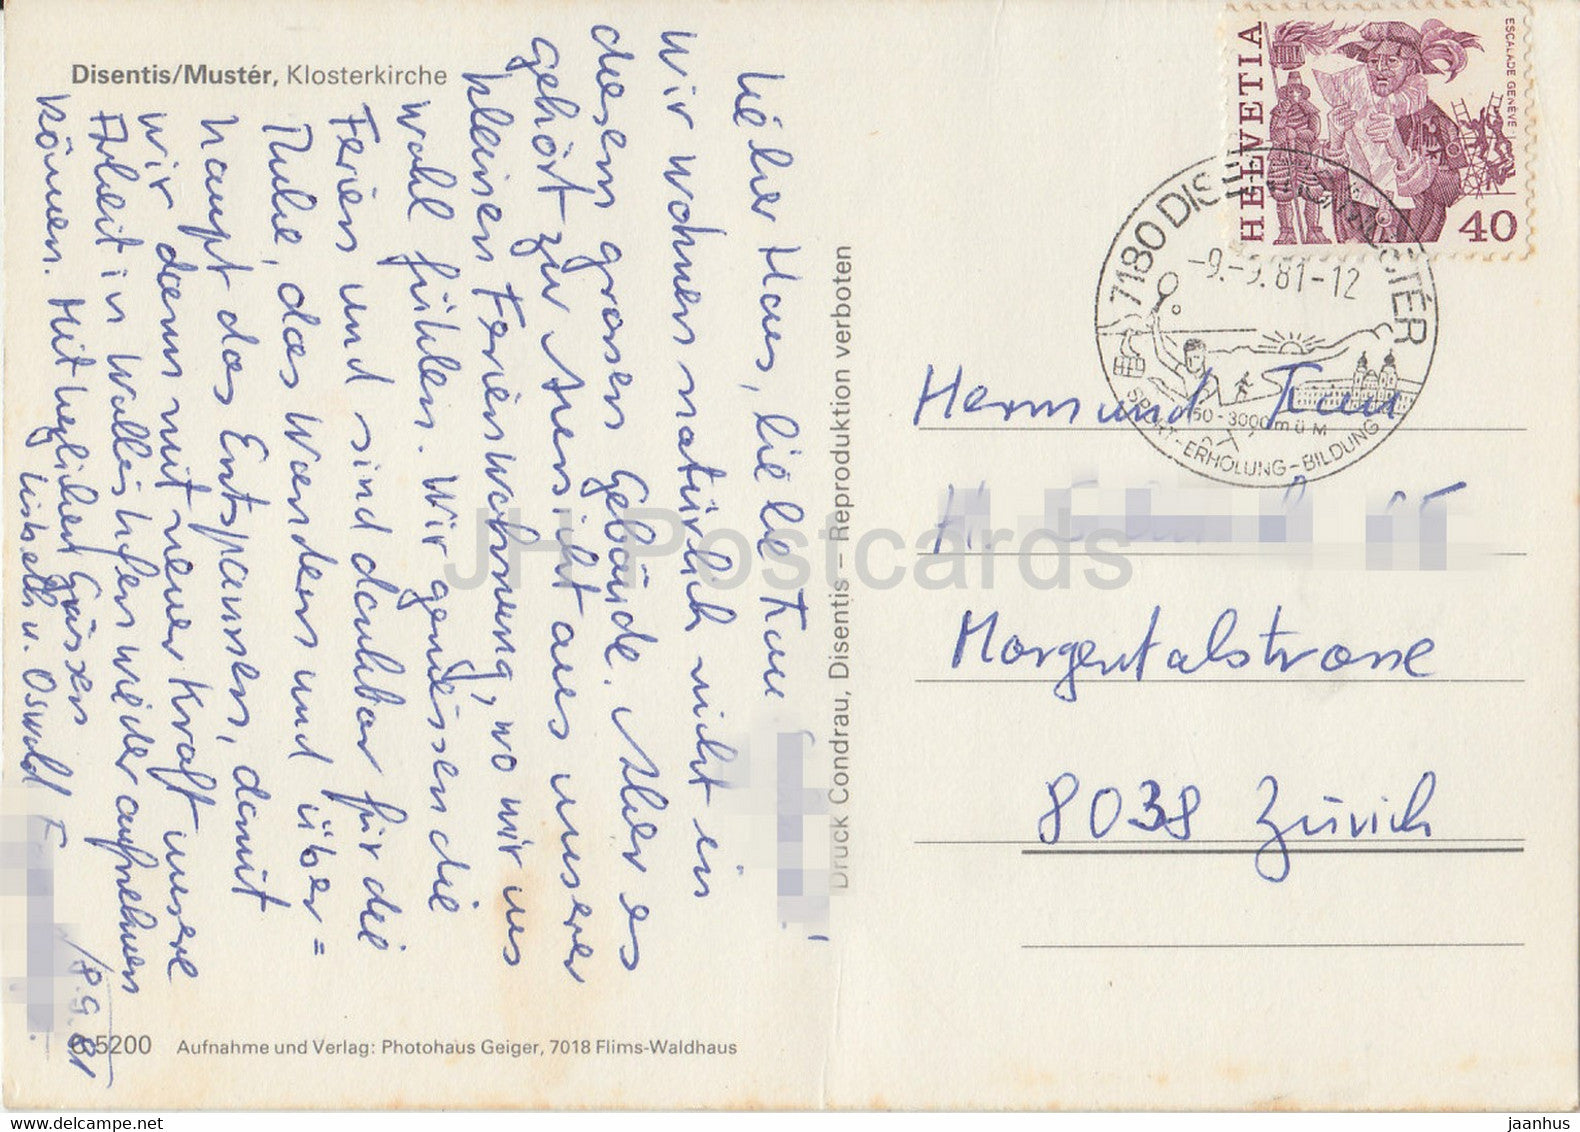 Disentis/Mustér, Klosterkirche
Lieber Hans, liebe Frau
Wir wohnen natürlich nicht in
diesem grossen Gebäude. Aber es
gehört zur Aussicht aus unserer
kleinen Ferienwohnung, wo wir uns
wohl fühlen. Wir geniessen die
Ferien und sind dankbar für die
Ruhe, das Wandern und über=
haupt das Entspannen, damit
wir dann mit neuer Kraft unsere
Arbeit in Wallisellen wieder aufnehmen
können. Mit herzlichen Grüssen
Lisbeth u. Oswald F
/8.9.81
5200 Aufnahme und Verlag: Photohaus Geiger, 7018 Flims-Waldhaus
Druck Condrau, Disentis – Reproduktion verboten
HELVETIA
ESCALADE GENÈVE
40
7180 DISENTIS/MUSTÉR
-9.-9.81-12
50-3000 m ü M
SPORT-ERHOLUNG-BILDUNG
Herrn und Frau
H.
Morgentalstrasse
8038 Zürich
JH Postcards
jaanhus